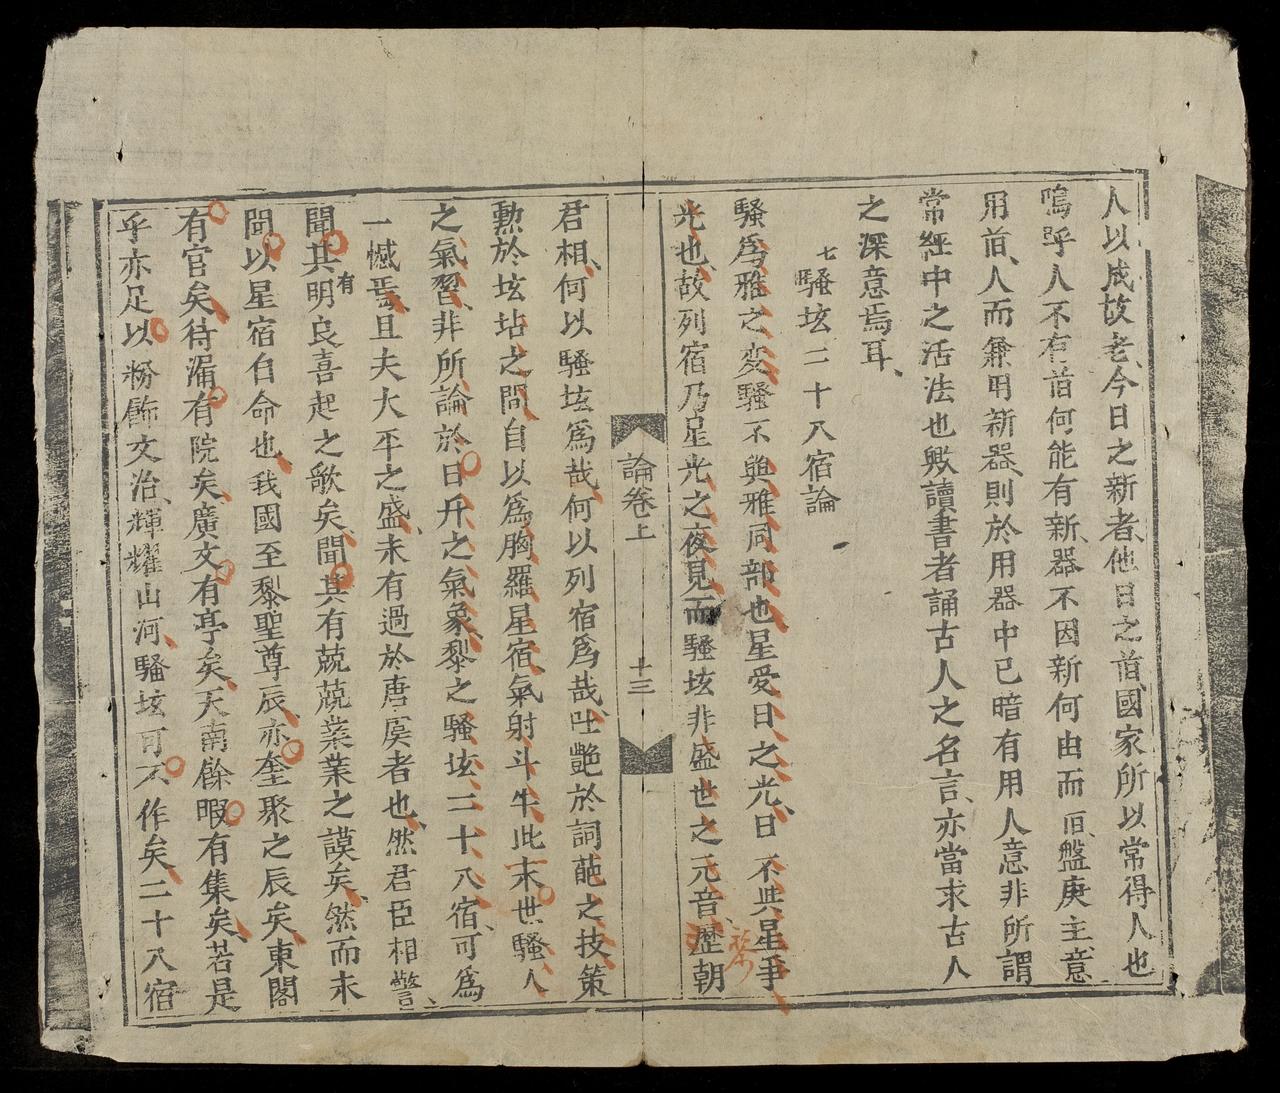 人以成故老、今日之新者、他日之舊、國家所以常得人也
嗚乎人不有舊何能有新、器不因新何由而舊、盤庚主意
用舊、人而兼用新器、則於用器中已暗有用人意非所謂
常經中之活法也歟讀書者誦古人之名言、亦當求古人
之深意焉耳、
七騷垓二十八宿論
騷爲雅之変騷不與雅同部也星受日之光、日不與星爭
光也、故列宿乃星光之夜見而騷垓非盛世之元音、歷朝
黎
論卷上
十三
君相、何以騷垓爲哉、何以列宿爲哉、吐艷於詞葩之技策
勲於垓坫之間、自以爲胸羅星宿、氣射斗牛此末世騷人
之氣習、非所論於日升之氣象、黎之騷垓、二十八宿、可爲
一憾焉、且夫大平之盛、未有過於唐虞者也、然君臣相警、
聞其有明良喜起之歌矣、聞其有兢兢業業之謨矣、然而未
聞以星宿自命也、我國至黎聖尊辰、亦奎聚之辰矣、東閣
有官矣、待漏有院矣、廣文有亭矣、天南餘暇有集矣、若是
乎亦足以粉飾文治、輝耀山河、騷垓可不作矣、二十八宿